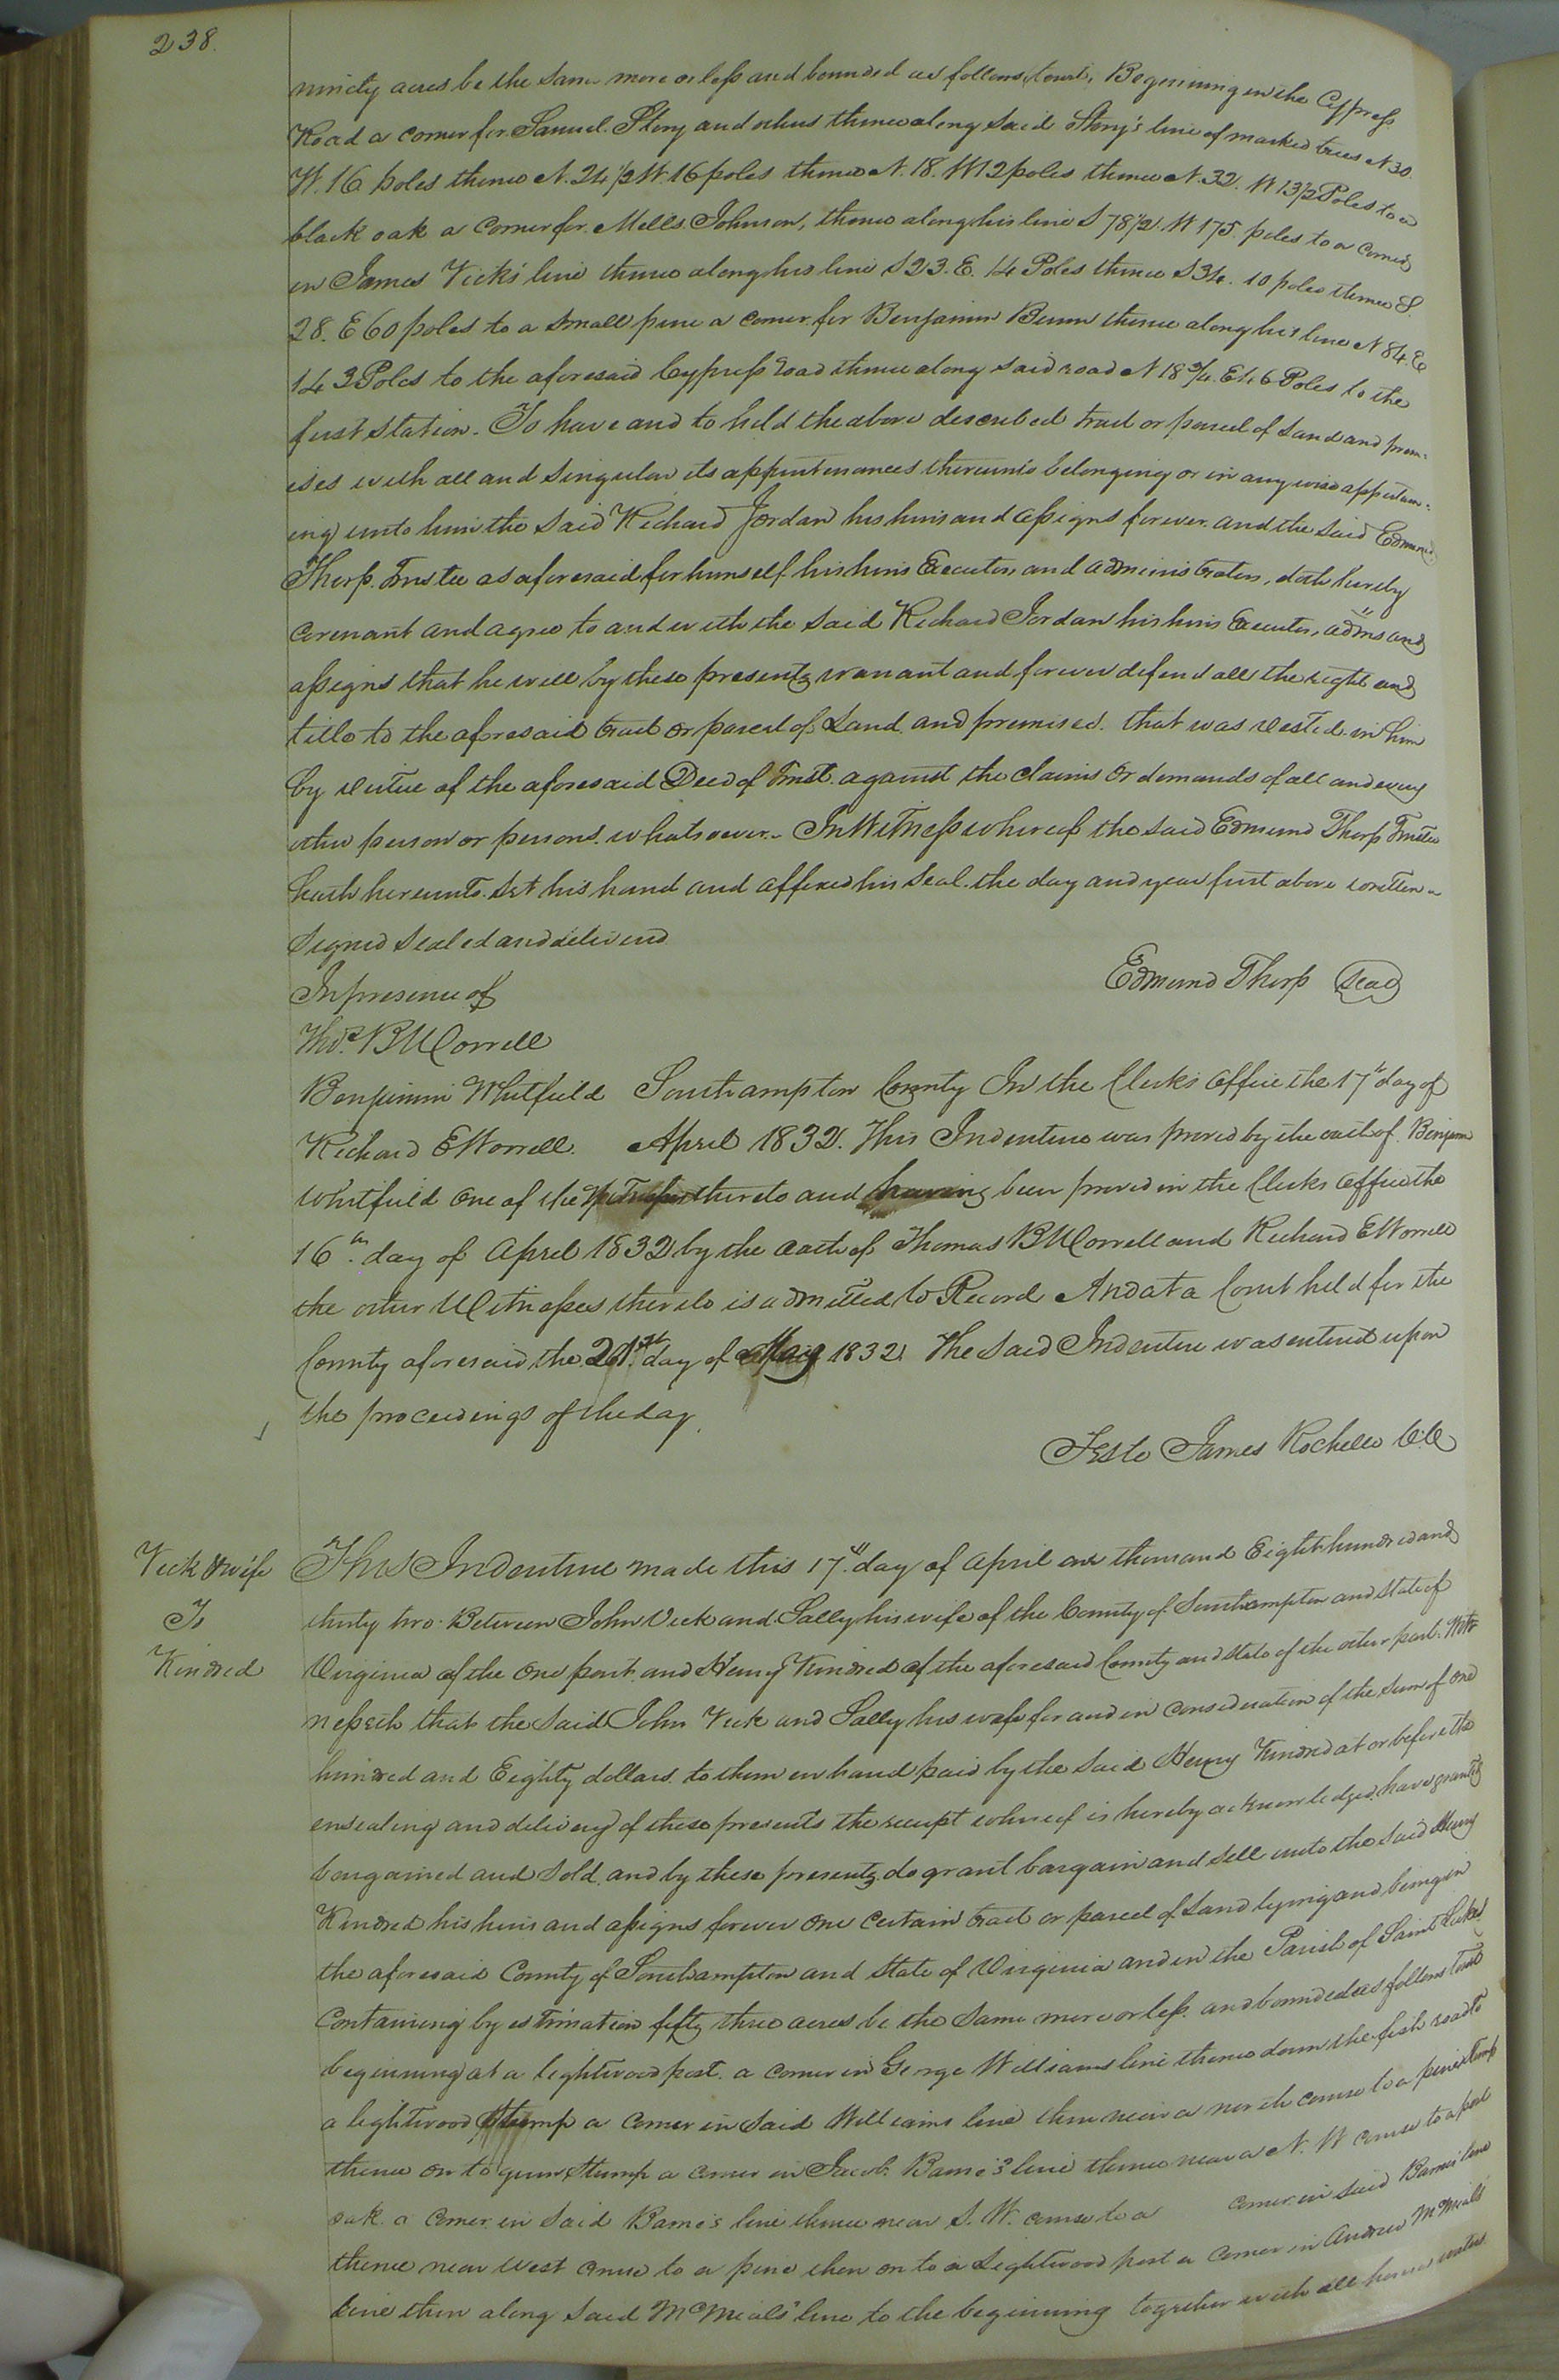 238.
ninety acres be the same more or less and bounded as follows, towit, Beginning in the Cypress
Road a corner for Samuel Story and others thence along said Story's line of marked trees N 30.
W. 16 poles thence N. 24 1/2 W. 16 poles thence N. 18. W 12 poles thence N. 32. W 13 1/2 Poles to a
black oak a corner for Mills Johnson, thence along his line S 78 1/2. W 175 poles to a corner
in James Vick's line thence along his line S 23. E. 14 Poles thence S 34. 10 poles thence S.
28. E 60 poles to a small pine a corner for Benjamin thence along his line N 84. E
143 Poles to the aforesaid Cypress road thence along said road N 18 3/4. E 46 Poles to the
first station. To have and to hold the above described tract or parcel of Land and prem-
ises with all and singular its appurtenances thereunto belonging or in any wise appertain-
ing unto him the said Richard Jordan his heirs and assigns forever and the said Edmund
Thorp Trustee as aforesaid for himself his heirs Executors and administrators, doth hereby
covenant and agree to and with the said Richard Jordan his heirs Executors, adms and
assigns that he will by these presents warrant and forever defend all the right and
title to the aforesaid tract or parcel of Land and premises. that was vested in him
by virtue of the aforesaid Deed of Trust against the claims or demands of all and every
other person or persons whatsoever. In Witness whereof the said Edmund Thorp Trustee
hath hereunto set his hand and affixed his seal the day and year first above written
Signed Sealed and delivered
Edmund Thorp Seal
In presence of
Thos. B Worrell
Benjamin Whitfield Southampton County In the Clerks office the 17th day of
Richard E Worrell. April 1832. This Indenture was proved by the oath of Benjamin
Whitfield one of the Witnesses thereto and having been proved in the Clerks office the
16th. day of April 1832 by the oath of Thomas B Worrell and Richard E Worrell
the other Witnesses thereto is admitted to Record And at a Court held for the
County aforesaid the 21st day of May 1832 The said Indenture was entered upon
the proceedings of the day.
Teste James Rochelle C.C
Vick & wife
To
Kindred
This Indenture made this 17th day of April one thousand Eight hundred and
thirty two Between John Vick and Sally his wife of the County of Southampton and state of
Virginia of the one part and Henry Kindred of the aforesaid County and state of the other part. Wit-
nesseth that the said John Vick and Sally his wife for and in consideration of the sum of one
hundred and Eighty dollars to them in hand paid by the said Henry Kindred at or before the
ensealing and delivery of these presents the receipt whereof is hereby acknowledged, have granted
bargained and sold and by these presents do grant bargain and sell unto the said Henry
Kindred his heirs and assigns forever one certain tract or parcel of Land lying and being in
the aforesaid County of Southampton and State of Virginia and in the Parish of Saint Lukes
Containing by estimation fifty three acres be the same more or less and bounded as follows towit
beginning at a lightwood post a corner in George Williams line thence down the fish road to
a lightwood stump a corner in said Williams line then near a north course to a pine stump
thence on to gum stump a corner in Jacob Barnes line thence near a N. W course to a post
oak a corner in said Barnes line thence near S. W. course to a corner in said Barnes line
thence near West course to a pine then on to a Lightwood post a corner in Andrew McNeals
line then along said McNeals line to the beginning together with all houses waters